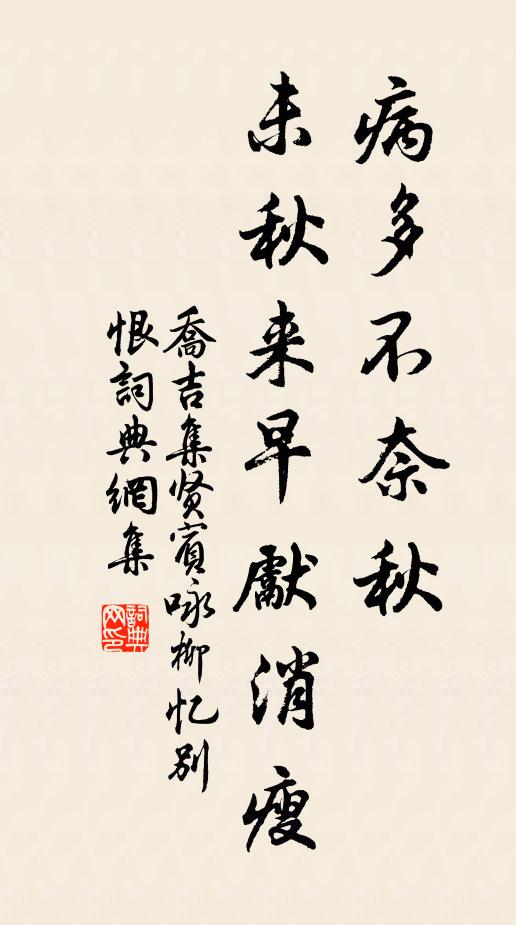 病多不奈秋
未秋来早獻消瘦
喬吉集贤賓咏柳忆别
恨詞典網集
詞典
网印